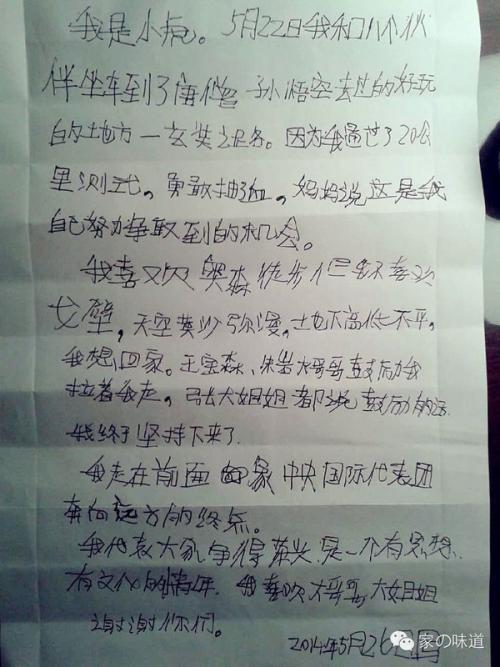 我是小虎。5月22日我和八个伙
伴坐车到了唐僧 孙悟空去过的好玩
的地方一玄奘之路。因为我通过了20公
里测试,勇敢抽血,妈妈说这是我
自己努力争取到的机会。
我喜欢奥森徒步 但是不喜欢
戈壁,天空黄沙弥漫,土地不高低不平,
我想回家。王宝森、朱岩大哥哥鼓励我
拉着我走,张大姐姐都说鼓励的话
我终于坚持下来了
我走在前面 象中央国际代表团
奔向远方的终点。
我代表大家争得荣兴 是一个有思想
有文化的青年 我喜欢大哥哥 大姐姐
谢谢你们。
2014年5月26日
家の味道